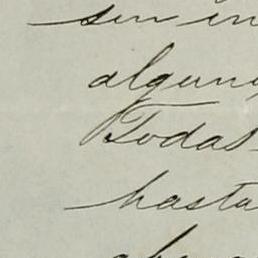 sin in
alguno
Todas
hasta